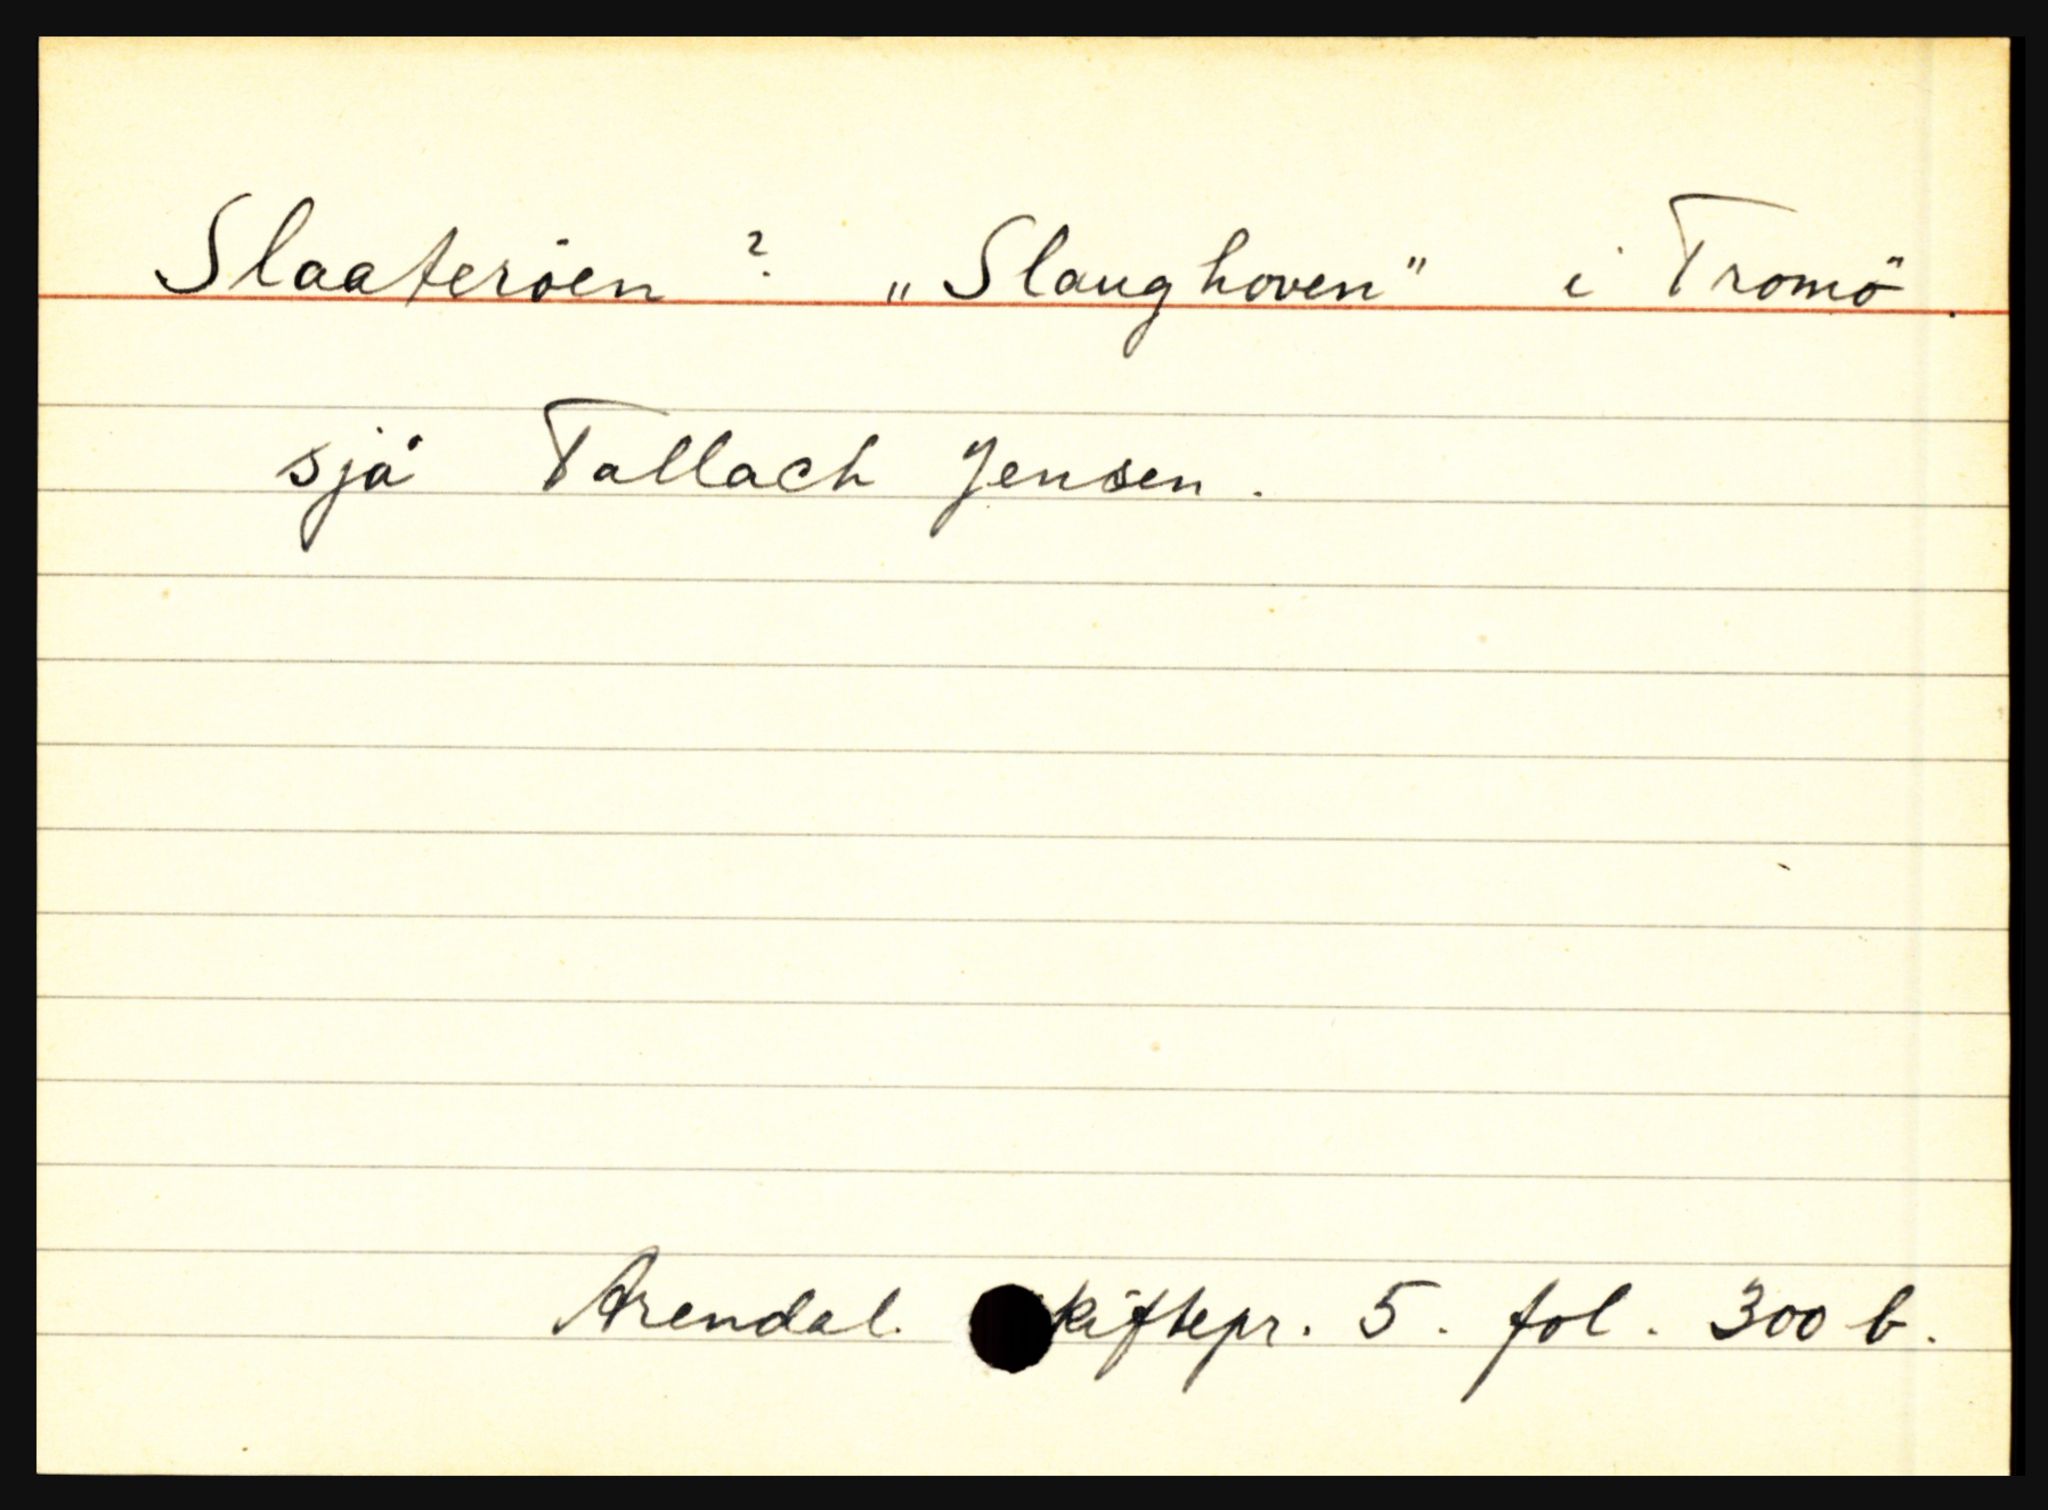 Slaaterøen ? „Slaughoven" i Tromö.
sjå Tallach Jensen.
Arendal. kiftepr. 5. fol. 300 b.